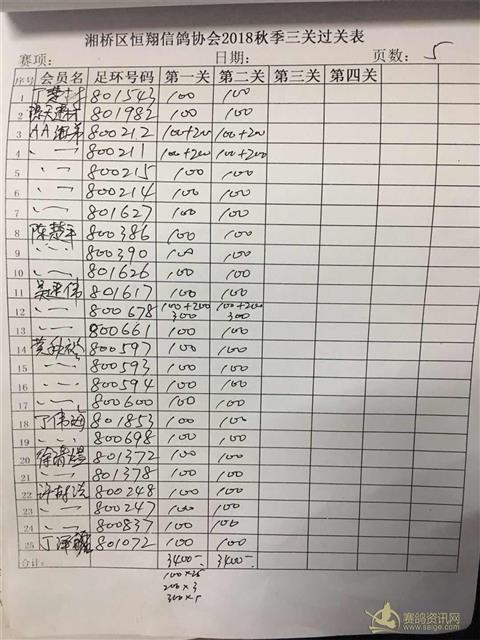 湘桥区恒翔信鸽协会2018秋季三关过关表
赛项: 日期: 页数: 5
序号 会员名 足环号码 第一关 第二关 第三关 第四关
1 801543 100 100
2 801982 100 100
3 AA 800212 100+200 100+200
4 〃 800211 100+200 100+200
5 〃 800215 100 100
6 〃 800214 100 100
7 〃 801627 100 100
8 陈楚平 800386 100 100
9 〃 800390 100 100
10 〃 801626 100 100
11 吴平伟 801617 100 100
12 〃 800678 100+200 300 100+200 300
13 〃 800661 100 100
14 800597 100 100
15 〃 800593 100 100
16 〃 800594 100 100
17 〃 800600 100 100
18 801853 100 100
19 〃 800698 100 100
20 801372 100 100
21 〃 801378 100 100
22 800248 100 100
23 〃 800247 100 100
24 〃 800837 100 100
25 801072 100 100
合计: 3400- 3400-
100×25
200×3
300×1
赛鸽资讯网
www.saige.com